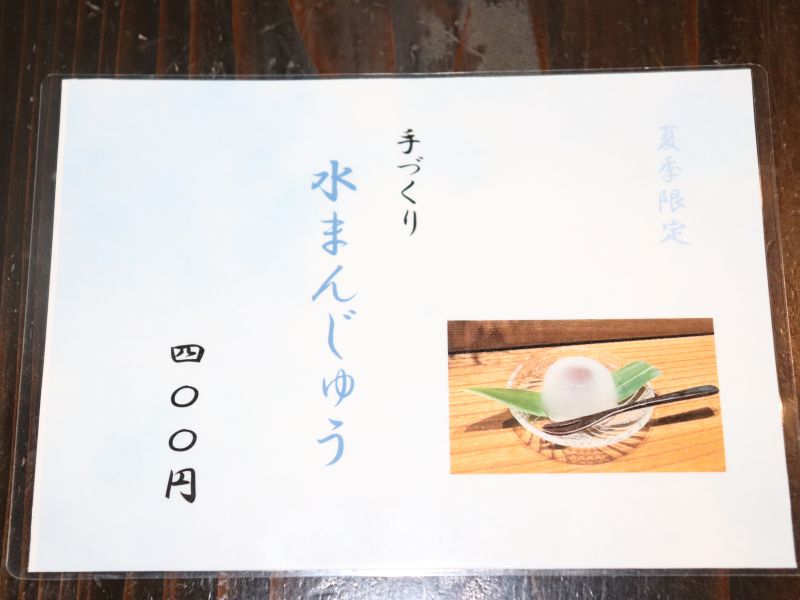 夏季限定
手づくり
水まんじゅう
四〇〇円